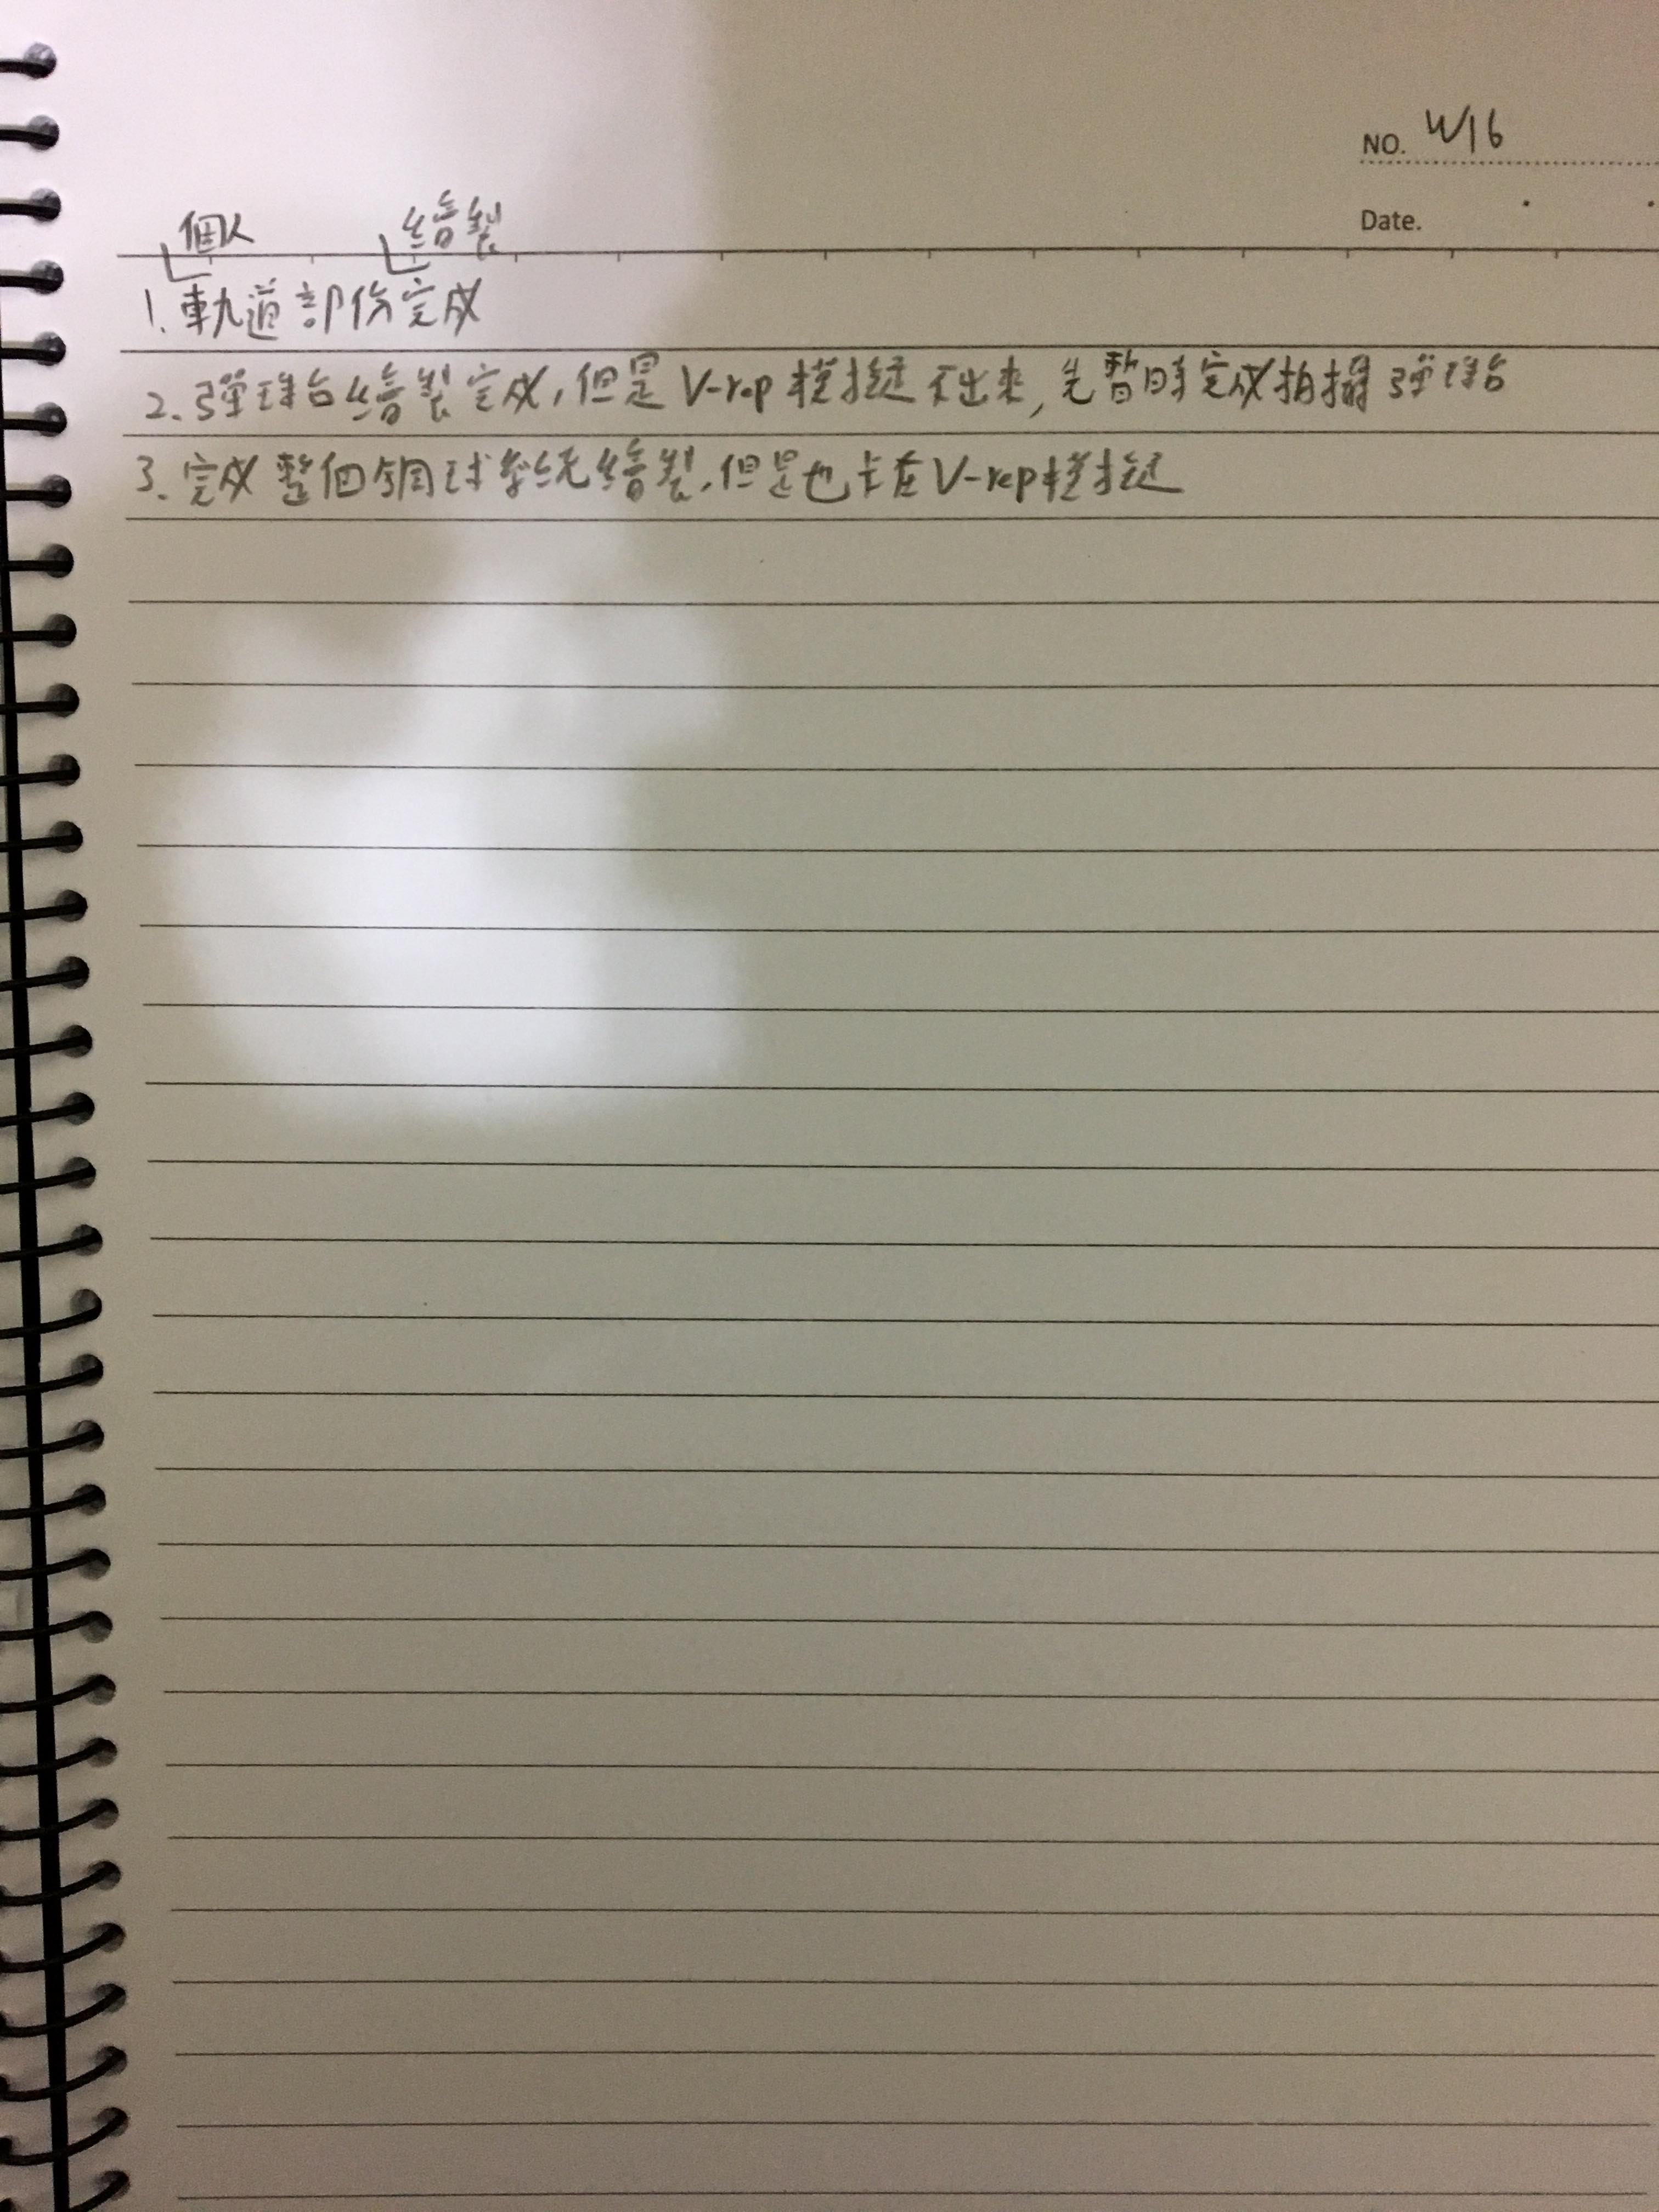 NO. W16
Date.
個人 繪製
1. 軌道部份完成
2. 彈珠台繪製完成,但是V-rep模擬不出來,先暫時完成拍攝彈珠台
3. 完成整個鋼球系統繪製,但是也卡在V-rep模擬